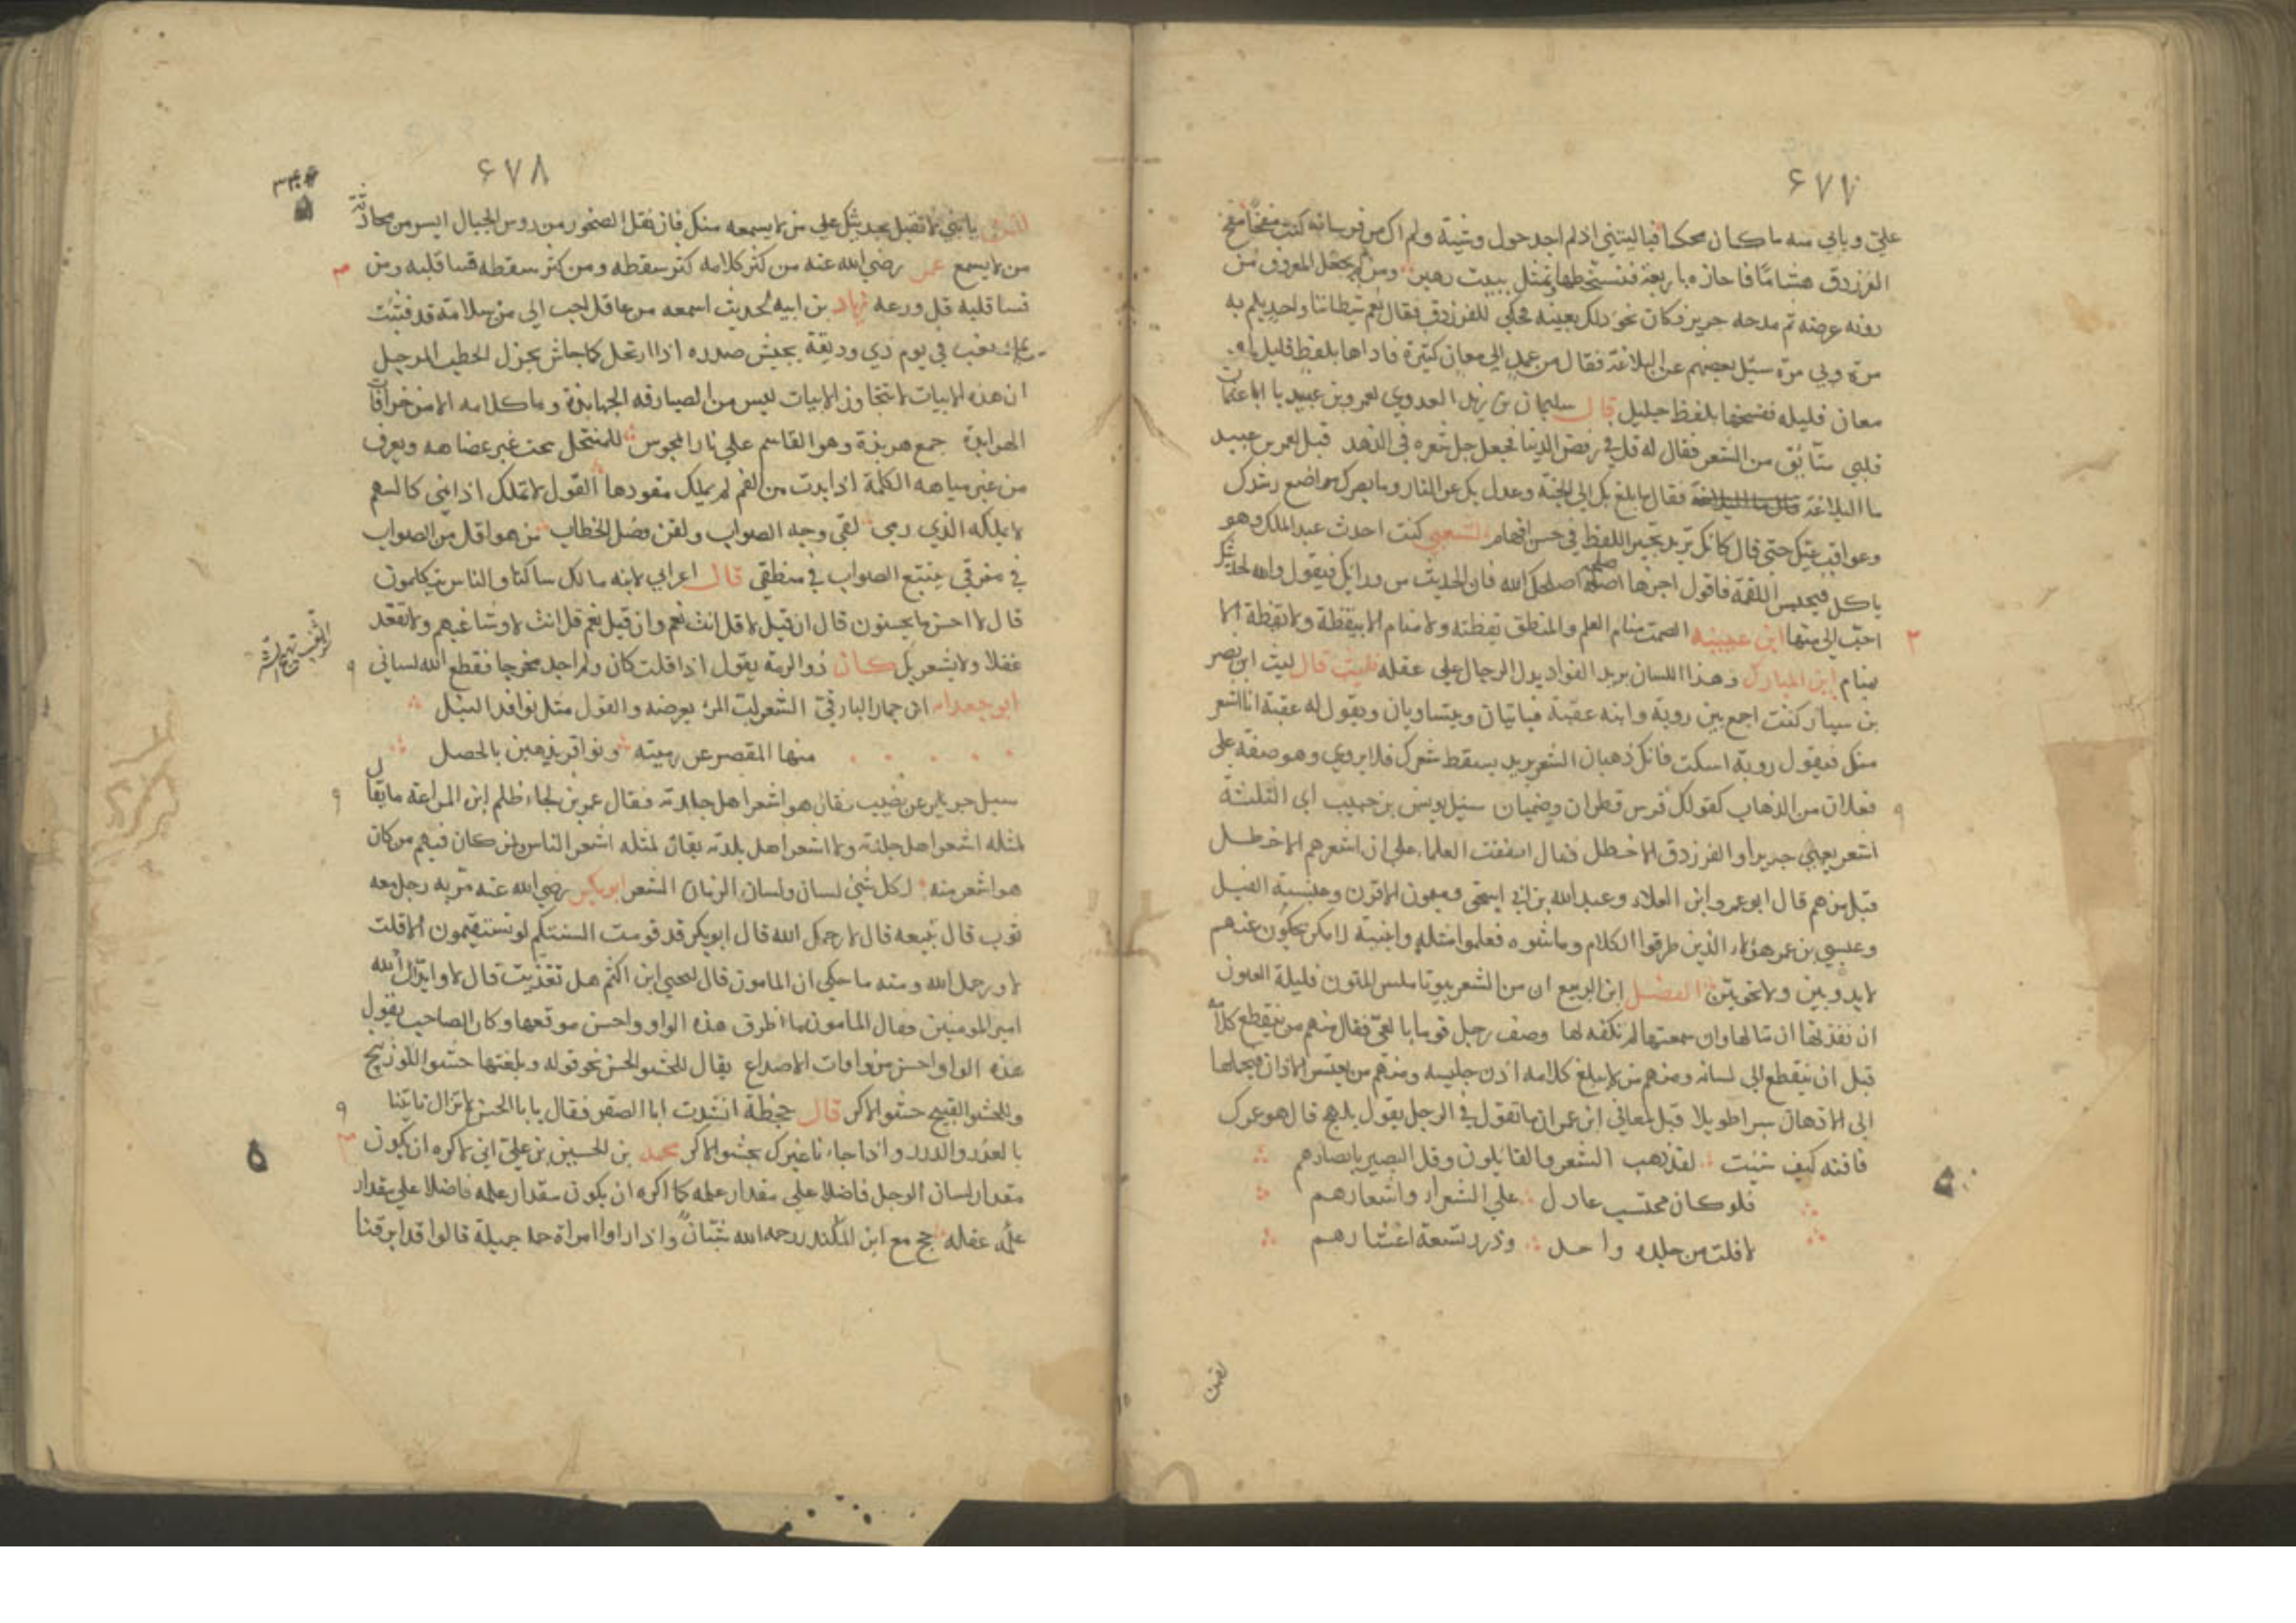 ۶۷۷
علي وبابي منه ما كان محكما فياليتني اذ لم اجد حول وشية ولم اك من فرسانه كنت مفحما مدح
الفرزدق هشاما فاجازه باربعة فتسخطها وتمثل ببيت زهير ومن يجعل المعروف من
دونه عرضه ثم مدحه جرير فكان نحو ذلك بعينه فحكي للفرزدق فقال نعم شيطاننا واحد يلم به
مرة وبي مرة سئل بعضهم عن البلاغة فقال من عمد الي معان كثيرة فاداها بلفظ قليل او
معان قليله فضخمها بلفظ جليل قال سليمان بن يزيد العدوي لعمرو بن عبيد يا ابا عثمان
قلبي من الشعر فقال له قل في رفض الدنيا فجعل جل شعره في الزهد قيل لعمر بن عبيد
ما البلاغة قال ما البلاغة فقال ما بلغ بك الي الجنة وعدل بك عن النار وما بصرك مواضع رشدك
وعواقب غيك حتي قال كانك تريد تحبير اللفظ في حسن افهام الشعبي كنت احدث عبد الملك وهو
ياكل فيحبس اللقمة فاقول اجزها اصلحك الله فان الحديث من ورائك فيقول والله لحديثك
احب الي منها ابن عيينه الصمت منام العلم والمنطق يقظته ولا منام الا بيقظة ولا يقظة الا
بمنام ابن المبارك وهذا اللسان بريد الفواد يدل الرجال علي عقله قال ليث ابن نصر
بن سيار كنت اجمع بين روبة وابنه عقبة فياتيان ويتساويان ويقول له عقبة انا اشعر
منك فيقول روبة اسكت فانك ذهبان الشعر يريد يسقط شعرك فلا يروي وهو صفة علي
فعلان من الذهاب كقولك فرس قطران وضميان سئل يونس بن حبيب اي الثلثة
اشعر يعني جرير او الفرزدق الاخطل فقال اتفقت العلماء علي ان اشعرهم الاخطل
قيل من هم قال ابو عمرو ابن العلاء وعبد الله بن ابي اسحق وميمون الاقرن وعنبسة الفيل
وعيسي بن عمر هؤلاء الذين طرقوا الكلام وماشوه فعلموا امثله وابنية لا كمن يحكون عنهم
لا بدويين ولا نحويين الفضل ابن الربيع ان من الشعر بيوتا ملس المتون قليلة العيون
ان نفذ بها ان تبالها وان سمعتها لم تكفه لها وصف رجل قوما بالعي فقال منهم من ينقطع كلامه
قبل ان ينقطع الي لسانه ومنهم من لا يبلغ كلامه اذن جليسه ومنهم من يقتسر الاذان فيحملها
الي الاذهان سيرا طويلا قيل لمعافي ابن عمران ما تقول في الرجل يقول يمدح قال هو عمرك
فافنه كيف شئت لقد ذهب الشعر والقايلون وقل البصير بابصارهم
فلو كان محتسب عادل علي الشعراء واشعارهم
لافلت من جلده واحد ودرر تسعة اعشارهم
لقمن
۶۷۸
لقمن يا بني لا تقبل بحديثك علي من لا يسمعه منك فان نقل الصخور من رؤس الجبال ايسر من محادثة
من لا يسمع عمر رضي الله عنه من كثر كلامه كثر سقطه ومن كثر سقطه قسا قلبه ومن
قسا قلبه قل ورعه زياد بن ابيه لحديث اسمعه من عاقل احب الي من سلامة قد فثئت
بماء ثغب في يوم ذي وديقة يجيش صدره اذا ارتجل كما جاش بجزل الحطب المرجل
ان هذه الابيات لا تتجاوز الابيات ليس من الصيارفه الجهابذة وما كلامه الا من خرافات
الهرابذة جمع هربذة وهو القاسم علي نار المجوس للمنتحل يحت غير عضاهه ويعرف
من غير مياهه الكلمة اذا بدت من الفم لم يملك مقودها القول لا تملك اذ اينمي كالسهم
لا يملكه الذي رمي لقي وجه الصواب ولقن فصل الخطاب من هو اقل من الصواب
في مفرقي يتبع الصواب في منطقي قال اعرابي لابنه مالك ساكتا والناس يتكلمون
قال لا احسن ما يحسنون قال ان قيل لا قل انت نعم وان قيل نعم قل انت لا وشاغبهم ولا تقعد
غفلا ولا يشعر بك كان ذو الرمة يقول اذا قلت كان ولم اجد مخرجا فقطع الله لساني
ابو جعدا ابن حمار البارقي الشعر لب المرء يعرضه والقول مثل نوافد النبل
منها المقصر عن رميته ونواقر يذهبن بالخصل
سيل جرير عن نصيب فقال هو اشعر اهل جلدته فقال عمر بن لجاء ظلم ابن المراغة ما يقال
لمثله اشعر اهل جلدته ولا اشعر اهل بلدته يقال لمثله اشعر الناس وان كان فيهم من كان
هو اشعر منه لكل شي لسان ولسان الزمان الشعر ابو بكر رضي الله عنه مر به رجل معه
ثوب قال تبيعه قال لا رحمك الله قال ابو بكر قد قومت السنتكم لو تستقيمون الا قلت
لا ورحمك الله ومنه ما حكي ان المامون قال ليحيي ابن اكثم هل تغذيت قال لا وايد الله
امير المومنين فقال المامون ما اظرف هذه الواو واحسن موقعها وكان الصاحب يقول
هذه الواو احسن من واوات الاصداغ يقال للحشو الحسن نحو قوله وبلغتها حشو اللوزينج
وللحشو القبيح حشو الاكر قال جحظة انشدت ابا الصقر فقال يا با الحسن لا تزال تاتينا
بالغرر والدرر واذا جاءنا غيرك بحشو الاكر محمد بن الحسين بن علي اني لاكره ان يكون
مقدار لسان الرجل فاضلا علي مقدار علمه كما اكره ان يكون مقدار علمه فاضلا علي مقدار
عقله حج مع ابن المنكدر رحمه الله شبان واذا راوا امراة جميلة قالوا قد ابرقنا